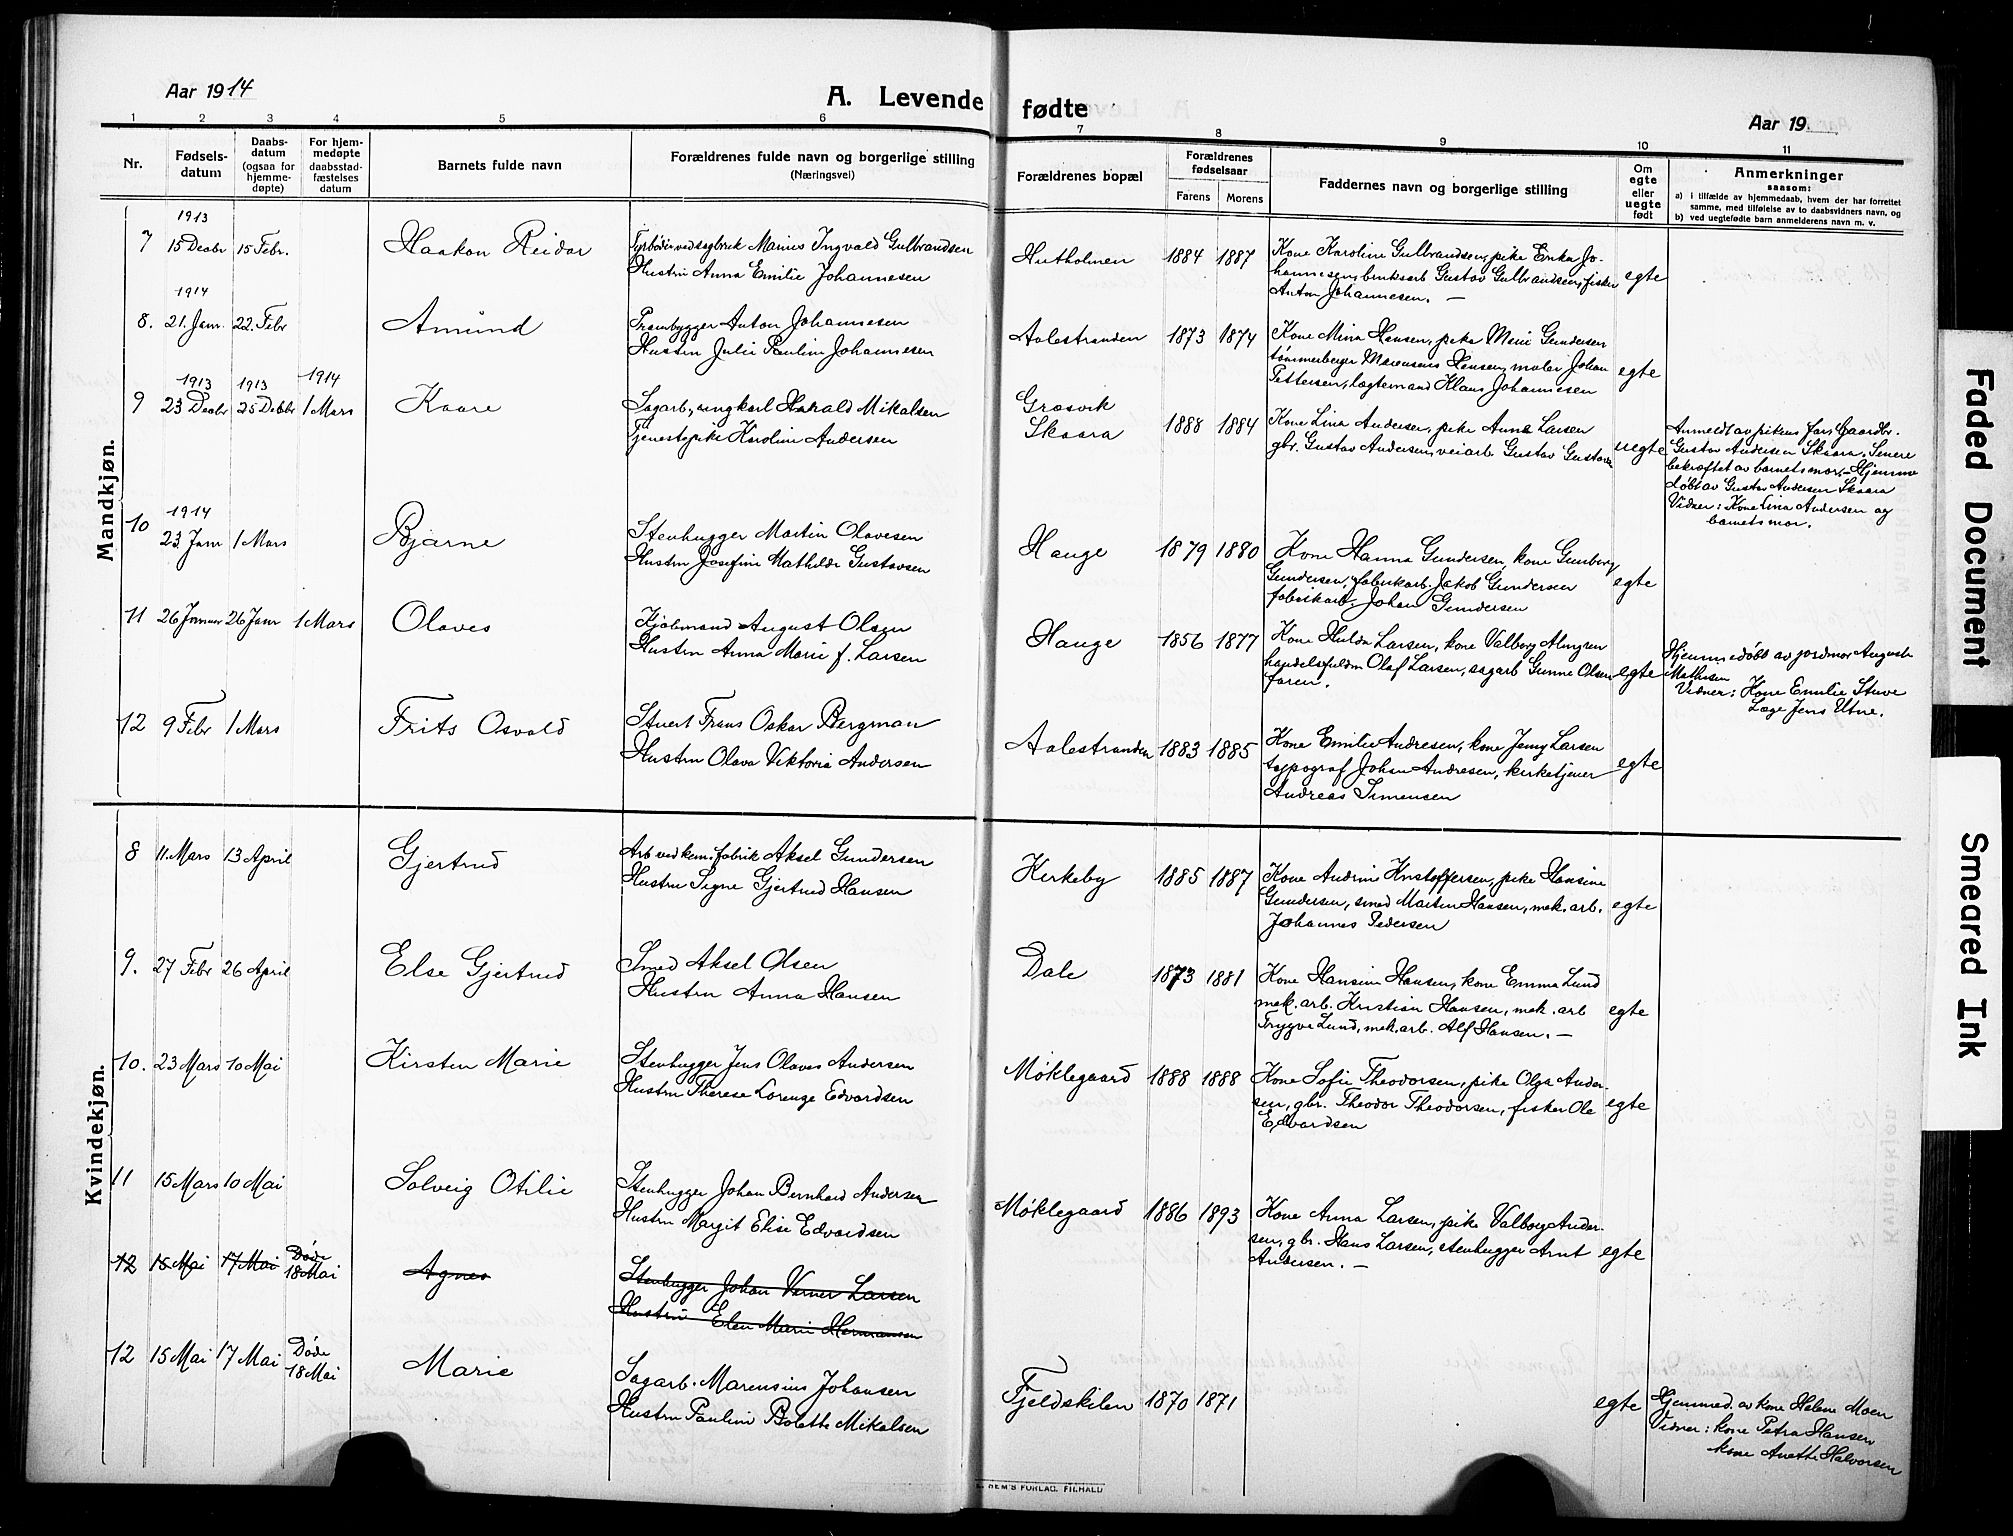 Aar 1914
A. Levende fødte
Aar 19
1 2 3 4 5 6 7 8 9 10 11
Nr.
Fødsels-
datum
Daabs-
datum
(ogsaa for
hjemme-
døpte)
For hjem-
medøpte
daabsstad-
fæstelses
datum
Barnets fulde navn
Forældrenes fulde navn og borgerlige stilling
(Næringsvei)
Forældrenes bopæl
Forældrenes
fødselsaar
Farens Morens
Faddernes navn og borgerlige stilling
Om
egte
eller
uegte
født
Anmerkninger
saasom:
a) i tilfælde av hjemmedaab, hvem der har forrettet
samme, med tilføielse av to daabsvidners navn, og
b) ved uegtefødte barn anmelderens navn m. v.
Mandkjøn.
1913
7 15 Decbr 15 Febr. Haakon Reidar
Fyrbøder ved sagbruk Marius Ingvald Gulbrandsen
Hustru Anna Emilie Johannesen
Hutholmen 1884 1887
Kone Karoline Gulbrandsen, pike Erika Jo-
hannesen, bruksarb Gustav Gulbrandsen, fisker
Anton Johannesen. —
egte
1914
8. 21. Jan. 22. Febr Amund
Prambygger Anton Johannesen
Hustru Julie Pauline Johannesen
Aalestranden 1873 1874
Kone Mina Hansen, pike Meni Gundersen
tømmerberger Marensius Hansen, maler Johan
Pettersen, lægtemand Klaus Johannesen
egte
1913 1913 1914
9 23 Decbr 25 Debbr 1 Mars Kaare
Sagarb, ungkarl Harald Mikalsen
Tjenestepike Karoline Andersen
Græsvik
Skaara
1888 1884
Kone Lina Andersen, pike Anna Larsen
gbr. Gustav Andersen, veiarb Gustav Gustavs
uegte
Anmeldt av pikens far, Gaardbr.
Gustav Andersen Skaara. Senere
bekræftet av barnets mor. – Hjemme
døbt av Gustav Andersen Skaara
Vidner: Kone Lina Andersen og
barnets mor.
1914
10 23. Janr 1 Mars Bjarne
Stenhugger Martin Olavesen
Hustru Josefine Mathilde Gustavsen
Hauge 1879 1880
Kone Hanna Gundersen, kone Gunborg
Gundersen, fabrikarb. Jakob Gundersen
fabrikarb. Johan Gundersen
egte
11 26 Januar 26 Janr 1 Mars Olaves
Kjøbmand August Olsen
Hustru Anna Marie f. Larsen
Hauge 1856 1877
Kone Hulda Larsen, kone Valborg Almgren
handelsfuldm Olaf Larsen, sagarb Gunne Olsen
faren.
egte
Hjemmedøbt av jordmor Augusta
Mathisen
Vidner: Kone Emilie Stuve
Læge Jens Utne.
12 9 Febr 1 Mars Frits Osvald
Stuert Frans Oskar Bergman
Hustru Olava Viktoria Andersen
Aalestranden 1883 1885
Kone Emilie Andresen, kone Jenny Larsen
typograf Johan Andresen, kirketjener
Andreas Simensen
egte
Kvindekjøn.
8 11. Mars 13 April Gjertrud
Arb ved kem. fabrik Aksel Gundersen
Hustru Signe Gjertrud Hansen
Kirkeby 1885 1887
Kone Andrine Kristoffersen, pike Hansine
Gundersen, smed Martin Hansen, mek. arb.
Johannes Pedersen
egte
9. 27 Febr 26 April Else Gjertrud
Smed Aksel Olsen
Hustru Anna Hansen
Dale 1873 1881
Kone Hansine Hansen, kone Emma Lund
mek. arb. Kristian Hansen, mek. arb
Trygve Lund, mek. arb. Alf Hansen. —
egte
10. 23 Mars 10 Mai Kirsten Marie
Stenhugger Jens Olaves Andersen
Hustru Therese Lorenze Edvardsen
Møklegaard 1888 1888
Kone Sofie Theodorsen, pike Olga Ander-
sen, gbr. Theodor Theodorsen, fisker Ole
Edvardsen
egte
11 15 Mars 10 Mai Solveig Otilie
Stenhugger Johan Bernhard Andersen
Hustru Margit Elise Edvardsen
Møklegaard 1886 1893
Kone Anna Larsen, pike Valborg Ander-
sen, gbr. Hans Larsen, stenhugger Arnt
Andersen. —
egte
12 15 Mai 17 Mai
Døde
18 Mai
Agnes
Stenhugger Johan Verner Larsen
Hustru Elen Marie Hermansen
12 15 Mai 17 Mai
Døde
18 Mai
Marie
Sagarb. Marensius Johansen
Hustru Pauline Bolette Mikalsen
Fjeldskilen 1870 1871
egte
Hjemmed. av kone Helene Moen
Vidner: kone Petra Hansen
kone Anette Halvorsen
Faded Document
Smeared Ink